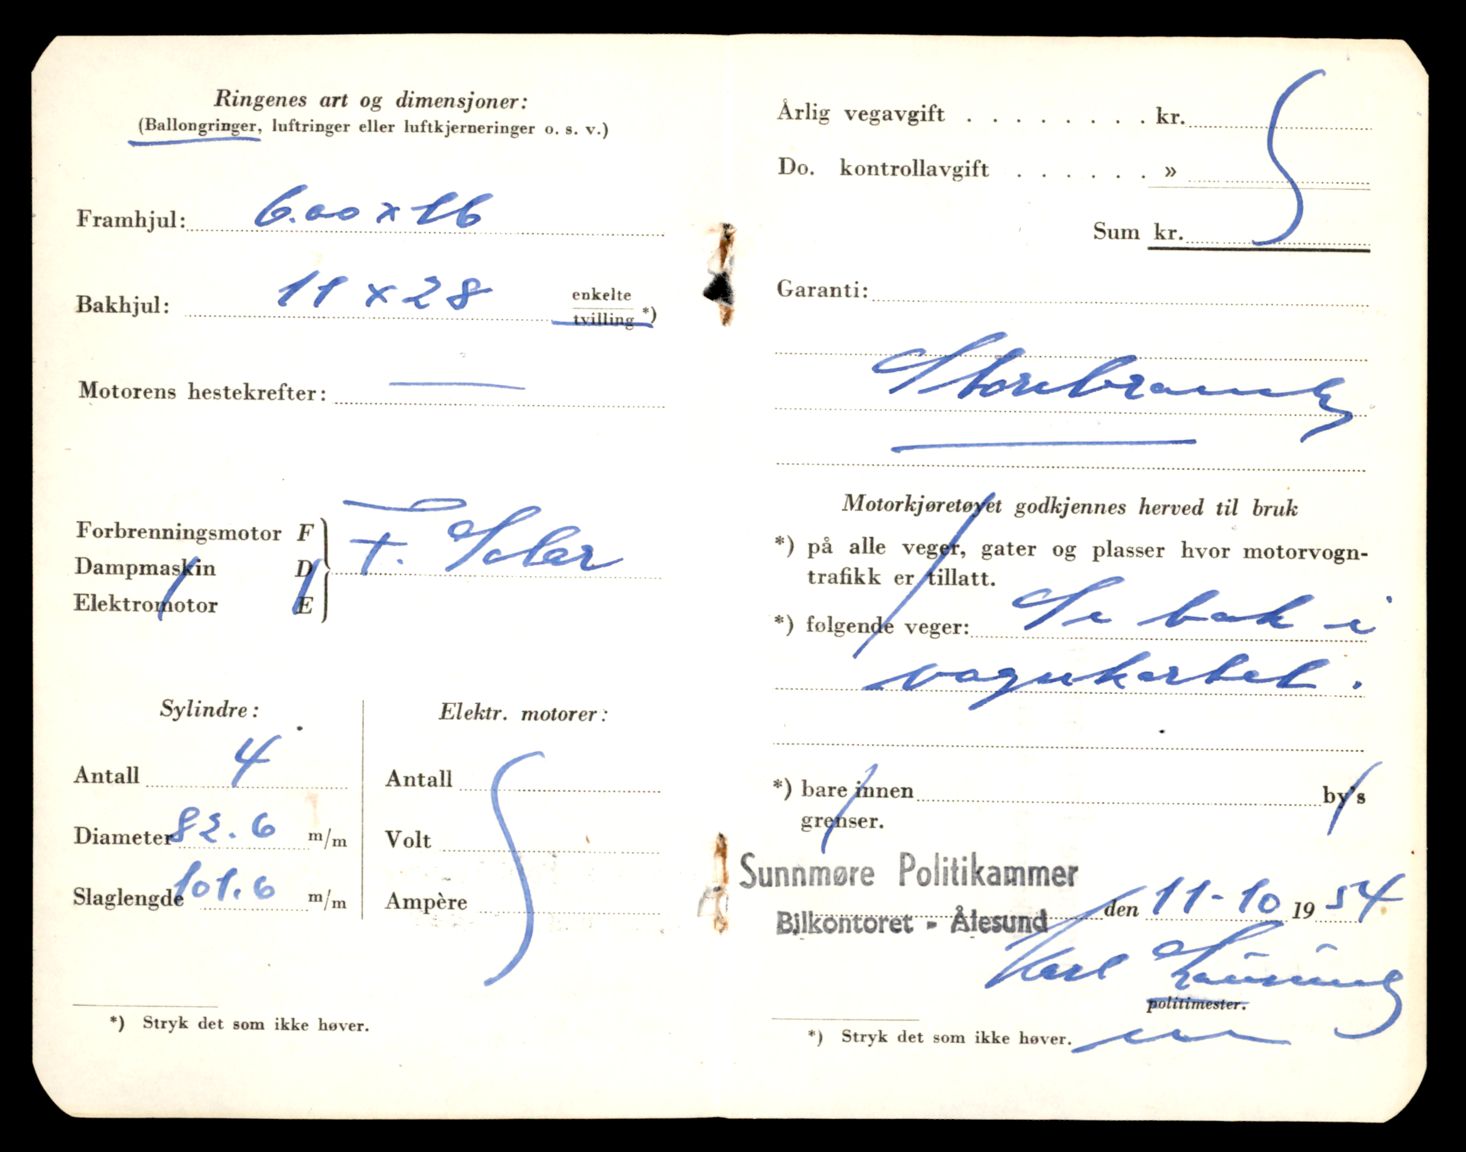 Ringenes art og dimensjoner:
(Ballongringer, luftringer eller luftkjerneringer o. s. v.)
Framhjul: 6.00 x 16
Bakhjul: 11 x 28 enkelte
tvilling *)
Motorens hestekrefter:
Forbrenningsmotor F
Dampmaskin D
Elektromotor E
Sylindre:
Antall 4
Diameter 82.6 m/m
Slaglengde 101.6 m/m
Elektr. motorer:
Antall
Volt
Ampère
*) Stryk det som ikke høver.
Årlig vegavgift . . . . . . . . kr.
Do. kontrollavgift . . . . . . »
Sum kr.
Garanti:
Storebrand
Motorkjøretøyet godkjennes herved til bruk
*) på alle veger, gater og plasser hvor motorvogn-
trafikk er tillatt.
*) følgende veger: Se bak i
vognkortet.
*) bare innen by's
grenser.
Sunnmøre Politikammer
Bilkontoret - Ålesund den 11-10 1954
Karl
politimester.
*) Stryk det som ikke høver.